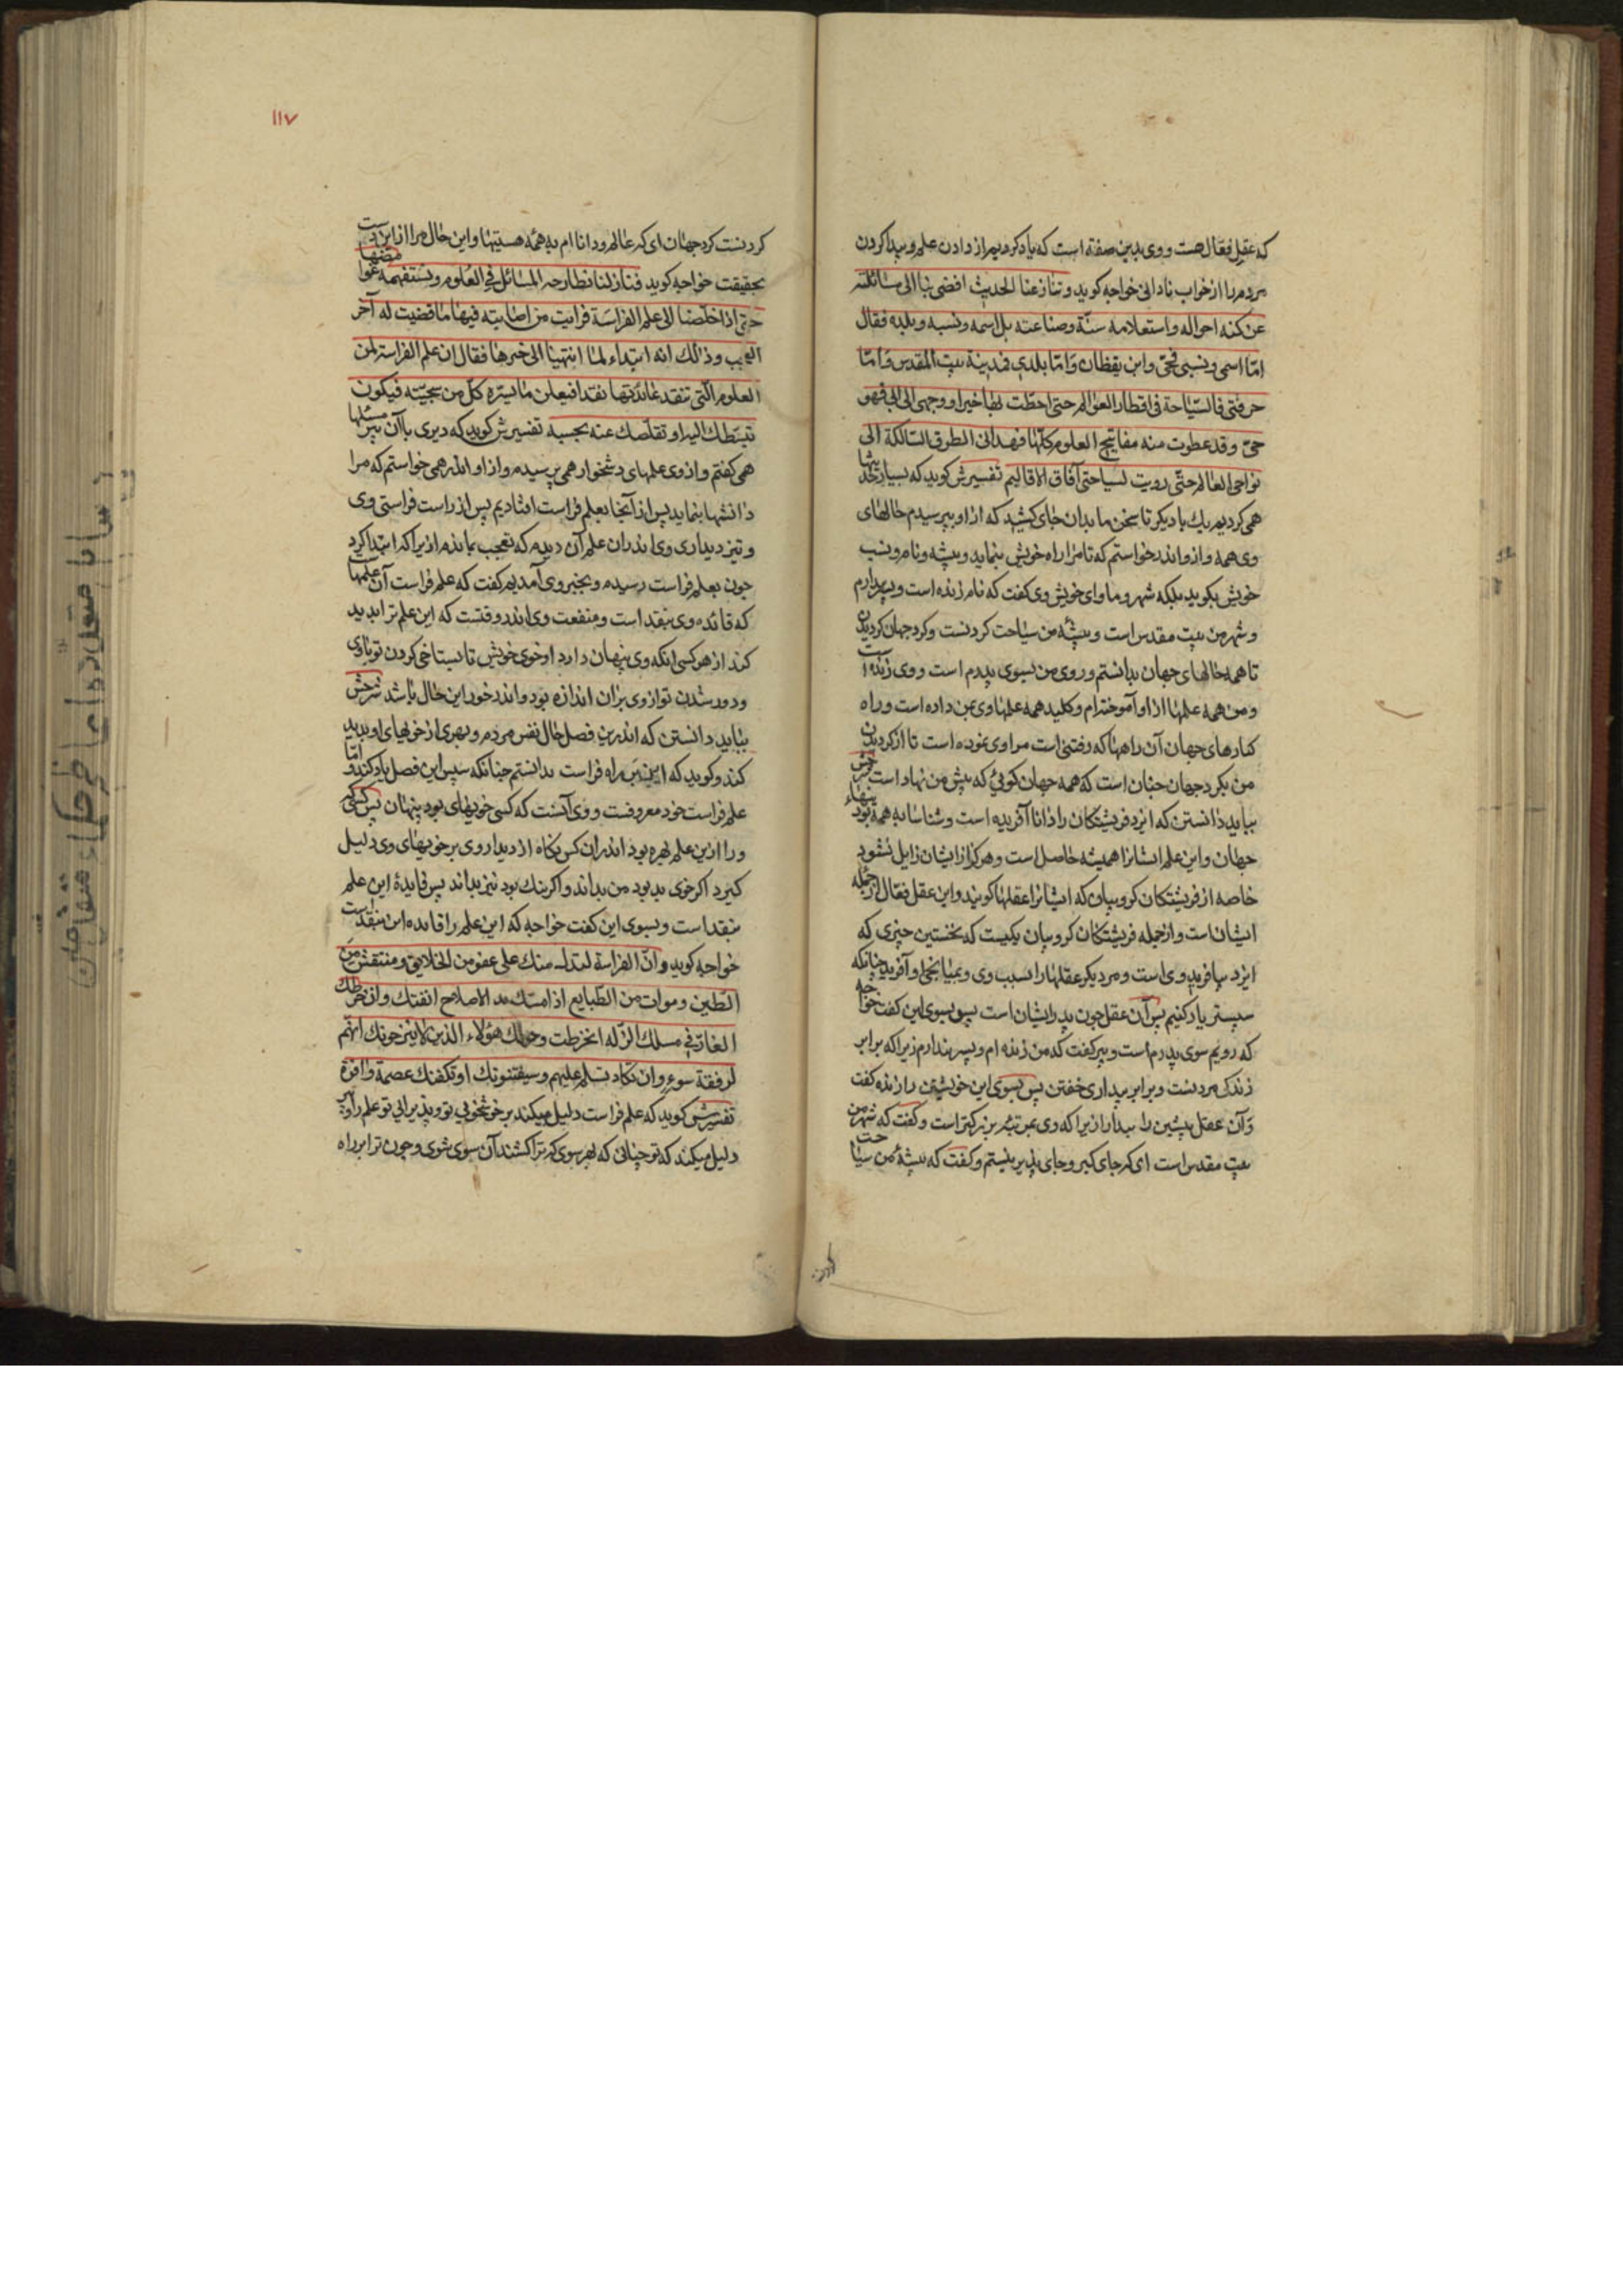 که عقل فعّال هست و وی بدین صفة است که یاد کردیم از دادن علم و پیدا کردن
مردم را از خواب نادانی خواجه کوید و تنازعنا الحدیث افضی بنا الی مسائلته
عن کنه احواله واستعلامه سنّة وصناعته بل اسمه ونسبه وبلده فقال
امّا اسمی ونسبی فحیّ وابن یقظان وَامّا بلدی فمدینة بیت المقدس وَامّا
حرفتی فالسّیاحة فی اقطار العوالم حتی احطّت بها خبرا و وجهی الی ابی فهو
حیّ وقد عطوت منه مفاتیح العلوم کلّها فهدانی الطرق السّالکة الی
نواحی العالم حتّی رویت بسیاحتی آفاق الاقالیم تفسیرش کوید که بسیار حدیثها
همی کردیم یک با دیکر تا سخن ما بدان جای کشید که از او بپرسیدم حالهای
وی همه و از و اندر خواستم که تا مرا راه خویش بنماید و پیشه و نام و نسب
خویش بکوید بلکه شهر و ماوای خویش وی کفت که نام زنده است و پسر بیدارم
و شهر من بیت مقدس است و پیشهٔ من سیاحت کردنست و کرد جهان کردیدن
تا همه حالهای جهان بدانستم و روی من بسوی پدرم است و وی زنده است
و من همه علمها از او آموخته‌ام و کلید همه علمها وی بمن داده است و راه
کنارهای جهان آن راهها که رفتنی است مرا وی نموده است تا از کردیدن
من بکرد جهان چنان است که همه جهان کویی که پیش من نهاد است شرحش
بباید دانستن که ایزد فریشتکان را دانا آفریده است و شناسا به همه بودنیهاء
جهان و این علم ایشانرا همیشه حاصل است و هرکز از ایشان زایل نشود
خاصه از فریشتکان کروبیان که ایشانرا عقلها کویند و این عقل فعّال از جمله
ایشان است و از جمله فریشتکان کروبیان یکیست که نخستین چیزی که
ایزد بیافرید وی است و مر دیکر عقلها را بسبب وی و بمیانجی او آفرید چنانکه
سپستر یاد کنیم پس آن عقل چون پدر ایشان است پس بسوی این کفت خواجه
که رویم سوی پدرم است و بپر کفت که من زنده ام و پسر بیدارم زیرا که برابر
زندکی مردنست و برابر بیداری خفتن پس بسوی این خویشتن را زنده کفت
وَآن عقل پیشین را بیدار ازیرا که وی بمرتبهٔ بزرکتر است و کفت که شهر من
بیت مقدس است ای که جای کیر و جای پذیر نیستم و کفت که پیشهٔ من سیاحت
۱۱۷
کردنست کرد جهان ای که عالم و دانا ام به همه هستیها و این حال مرا از این دست
بحقیقت خواجه کوید فما زلنا نطارحه المسائل فی العلوم ونستفهمه غوامضها
حتی اذا خلّصنا الی علم الفراسَة فرایت من اصابته فیها ما قضیت له آخر
العجب وذالک انه ابتداء لما انتهینا الی خبرها فقال ان علم الفراسة لمن
العلوم الّتی تنقد عائدتها نقدا فیعلن ما یسرّه کلّ من سجیّته فیکون
تبسّطک الیه او تقلّصک عنه بحسبه تفسیرش کوید که دیری با آن پیر مسئلها
همی کفتم و از وی علمهای دشخوار همی پرسیدم و از او اندر همی خواستم که مرا
دانشها بنماید پس از آنجا بعلم فراست افتادیم پس از راست فراستی وی
و تیز دیداری وی اندران علم آن دیدم که بعجب بماندم ازیرا که ابتدا کرد
چون بعلم فراست رسیدم و بخبر وی آمدیم کفت که علم فراست از آن علمهاست
که فائده وی بنقد است و منفعت وی اندر وقتست که این علم ترا پدید
کند از هر کسی انکه وی پنهان دارد از خوی خویش تا بستاخی کردن تو با وی
و دور شدن تو از وی بران اندازه بود و اندر خور این حال باشد شرحش
بباید دانستن که اندرین فصل حال نفس مردم و بهری از خویهای او پدید
کند و کوید که این پیر براه فراست بدانستم چنانکه سپس این فصل یاد کند و امّا
علم فراست خود معروفست و وی آنست که کسی خویهای بود پنهان پس کسی که
ورا ازین علم بهره بود اندران کس نکاه از دیدار وی بر خویهای وی دلیل
کیرد اکر خوی بد بود من بداند و اکر نیک بود نیز بداند پس فایدهٔ این علم
بنقد است و بسوی این کفت خواجه که این علم را فایده این بنقدست
خواجه کوید وانّ الفراسة لتدلـ منک علی عفو من الخلایق ومنتقش من
الطّین وموات من الطّبایع اذا مسّتک ید الاصلاح اتقنتک وان خرطک
الغارّ فی مسلک الزّلة انخرطت وحولک هؤلاء الذین لا یبرحونک انهّم
لرفقة سوء وان تکاد تسلم علیهم وسیفتنونک او تکفنک عصمة وافرة
تفسیرش کوید که علم فراست دلیل میکند بر خوشخویی تو و پذیرایی تو علم را و پس
دلیل میکند که تو چنانی که بهر سوی که ترا کشند آن سوی شوی و چون ترا بر راه